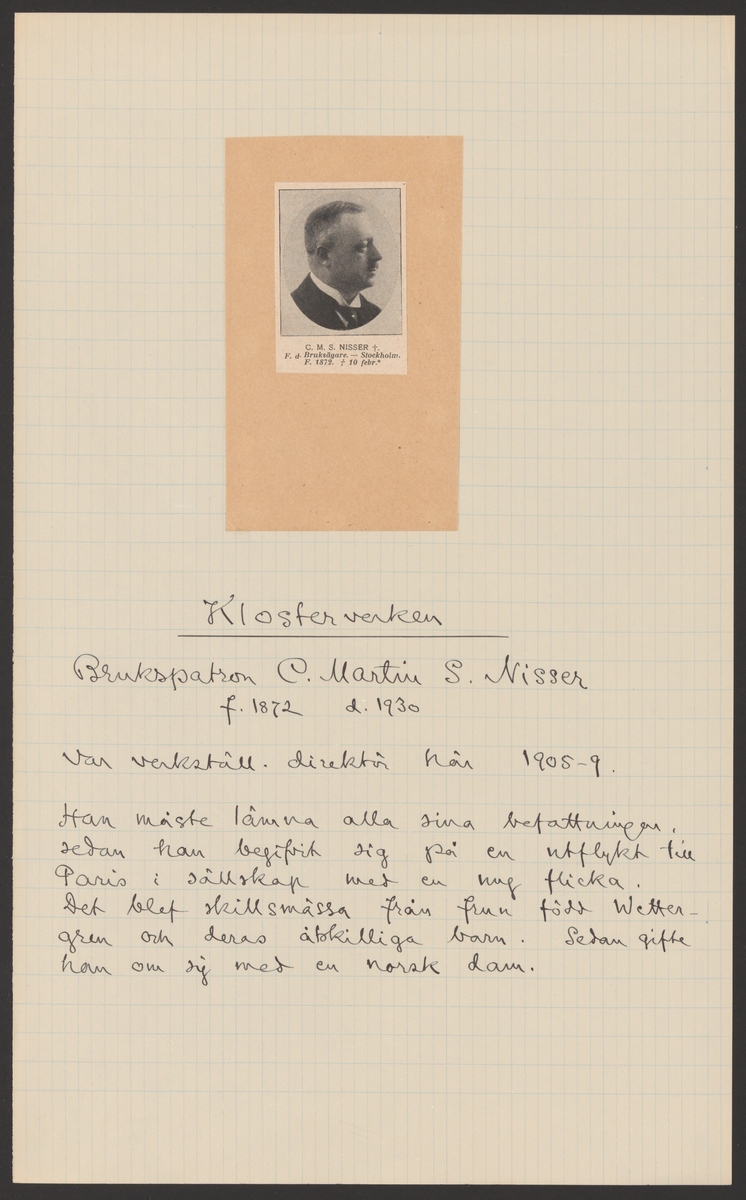 C. M. S. NISSER †.
F. d. Bruksägare. — Stockholm.
F. 1872. † 10 febr.*
Klosterverken
Brukspatron C. Martin S. Nisser
f. 1872 d. 1930
Var verkställ. direktör här 1905-9.
Han måste lämna alla sina befattningar,
sedan han begifvit sig på en utflykt till
Paris i sällskap med en ung flicka.
Det blef skillsmässa från frun född Wetter-
gren och deras åtskilliga barn. Sedan gifte
han om sig med en norsk dam.